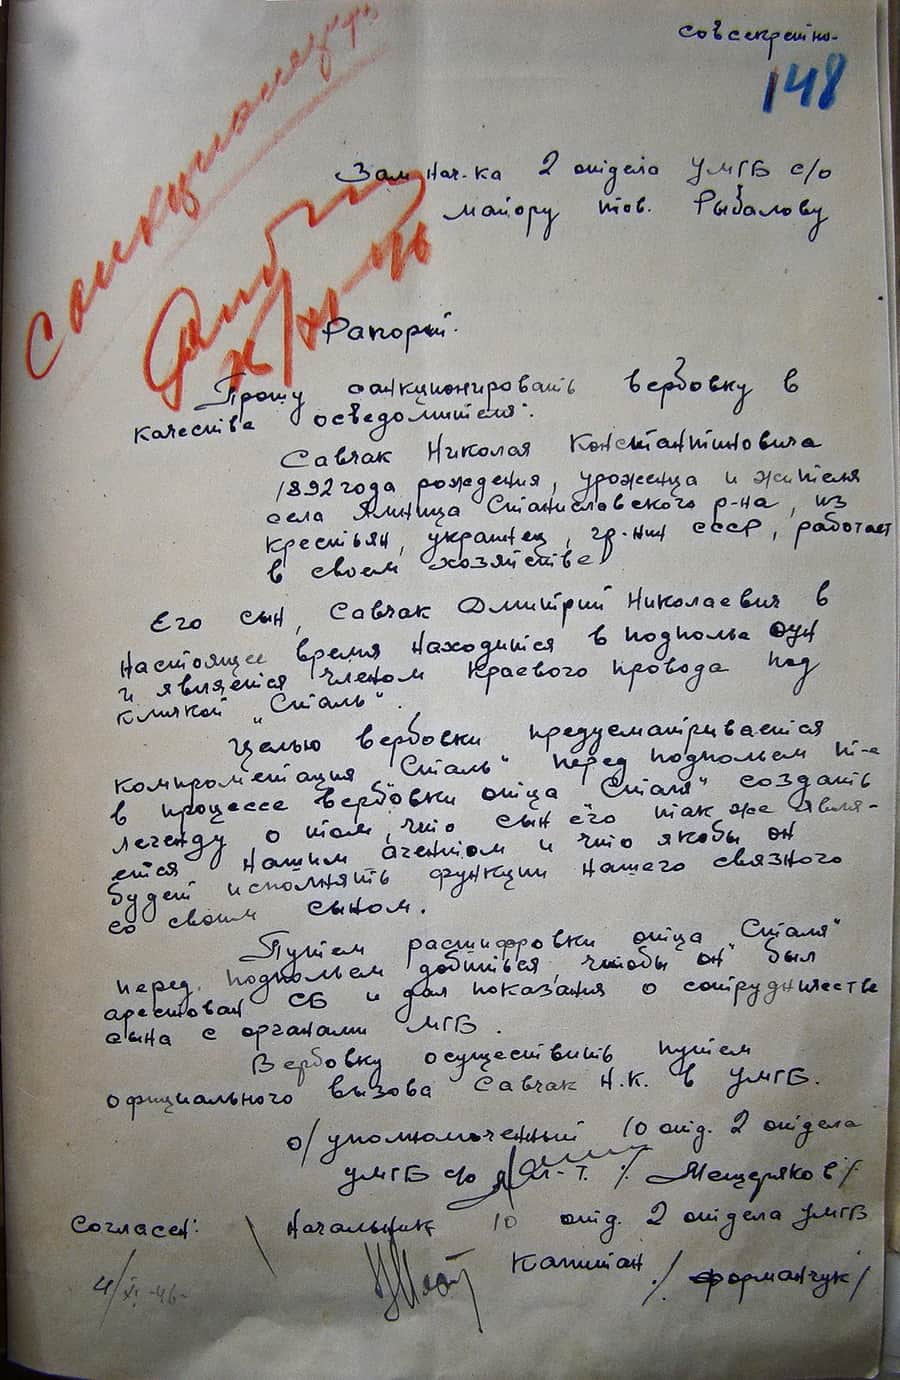 совсекретно-
148
Санкционирую
Зам нач-ка 2 отдела УМГБ с/о
майору тов. Рыбалову
26/XI-46
Рапорт.
Прошу санкционировать вербовку в
качестве осведомителя:
Савчак Николая Константиновича
1892 года рождения, уроженца и жителя
села Ямница Станиславского р-на, из
крестьян, украинец, гр-нин СССР, работает
в своем хозяйстве
Его сын, Савчак Дмитрий Николаевич в
настоящее время находится в подполье ОУН
и является членом Краевого провода под
кличкой „Сталь".
Целью вербовки предусматривается
компрометация „Сталь" перед подпольем т-е
в процессе вербовки отца „Сталя" создать
легенду о том, что сын его так же явля-
ется нашим агентом и что якобы он
будет исполнять функции нашего связного
со своим сыном.
Путем расшифровки отца „Сталя"
перед подпольем добиться, чтобы он был
арестован СБ и дал показания о сотрудничестве
сына с органами МГБ.
Вербовку осуществить путем
официального вызова Савчак Н.К. в УМГБ.
о/уполномоченный 10 отд. 2 отдела
УМГБ с/о Л-т. /Мещеряков/
Согласен: Начальник 10 отд. 2 отдела УМГБ
Капитан /Форманчук/
4/XI-46-